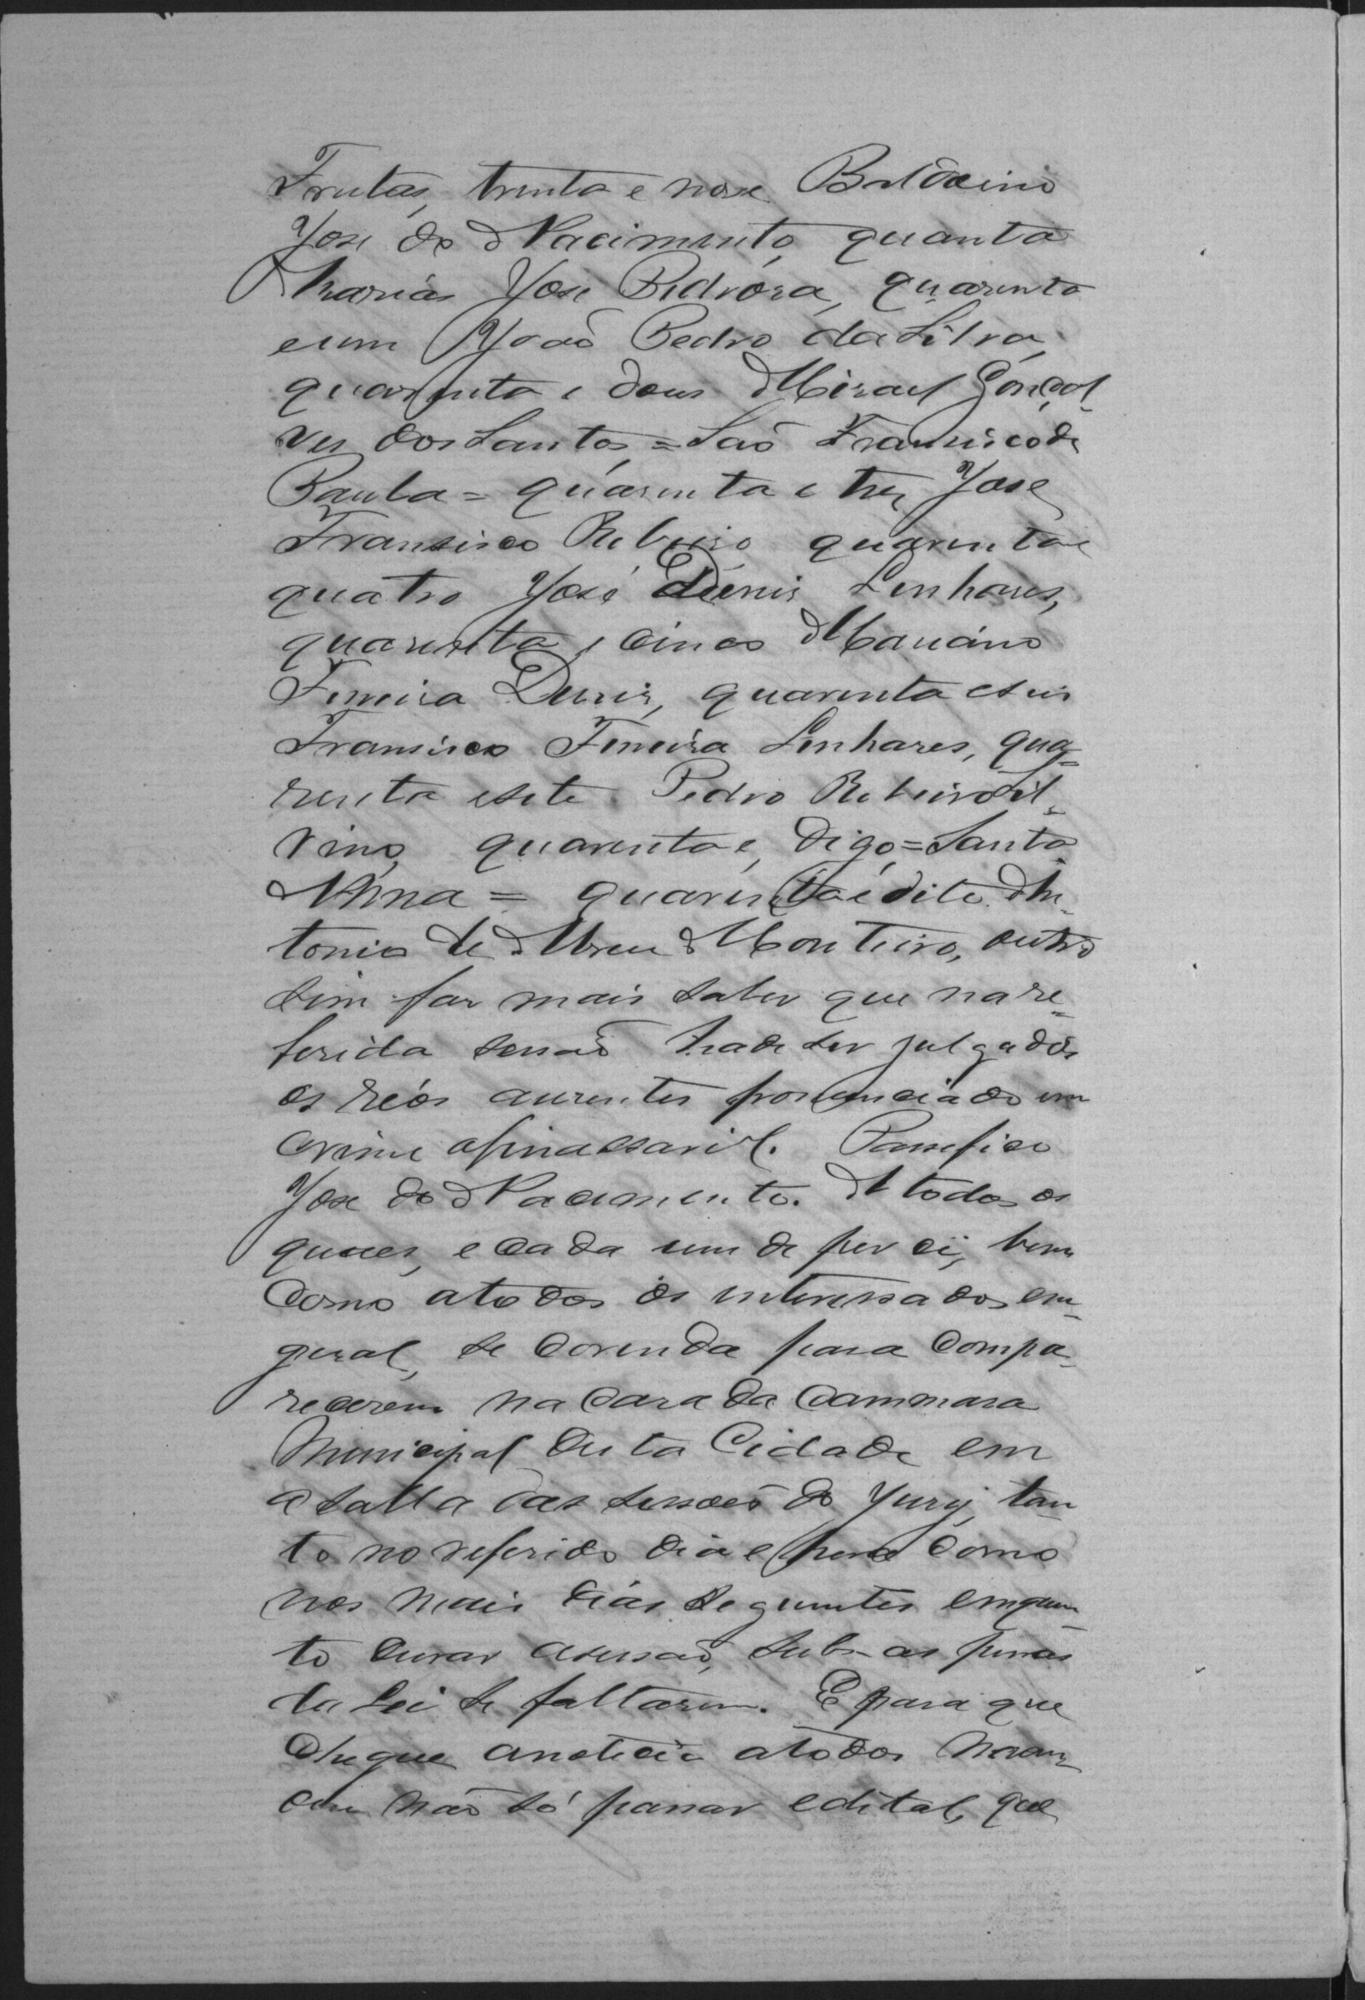 Frutas, trinta e nove Baldoino
Jose do Nacimento, quarenta
Thomás Jose Pedróza, quarenta
e um João Pedro da Silva,
quarenta e dous Mizael Gonçal-
ves dos Santos, = São Francisco de
Paula = quarenta e tres, Jose
Francisco Ribeiro quarenta e
quatro José Diniz Linhares,
quarenta e cinco Marciano
Ferreira Diniz, quarenta e seis
Francisco Ferreira Linhares, qua-
renta e sete Pedro Ribeiro Sil-
vino, quarenta e, digo, = Santa
Anna = quarenta e oito An-
tonio de Abreu Monteiro, outro
sim faz mais saber que na re-
ferida sessão hade ser julgados
os reós auzentes pronunciado em
crime afinassavil. Pacifico
Jose do Nacimento. A todos os
quaes, e cada um de per ci, bem
como a todos os interessados em
geral, se convida para compa-
recerem na caza da Cammara
Municipal desta Cidade em
a salla das sessões do Jury, tan
to no referido dia e hora como
nos mais dias seguintes emquan
to durar a sessão, sub as penas
da Lei se faltarem. E para que
chegue a noticia a todos man-
dei não só passar edital, que